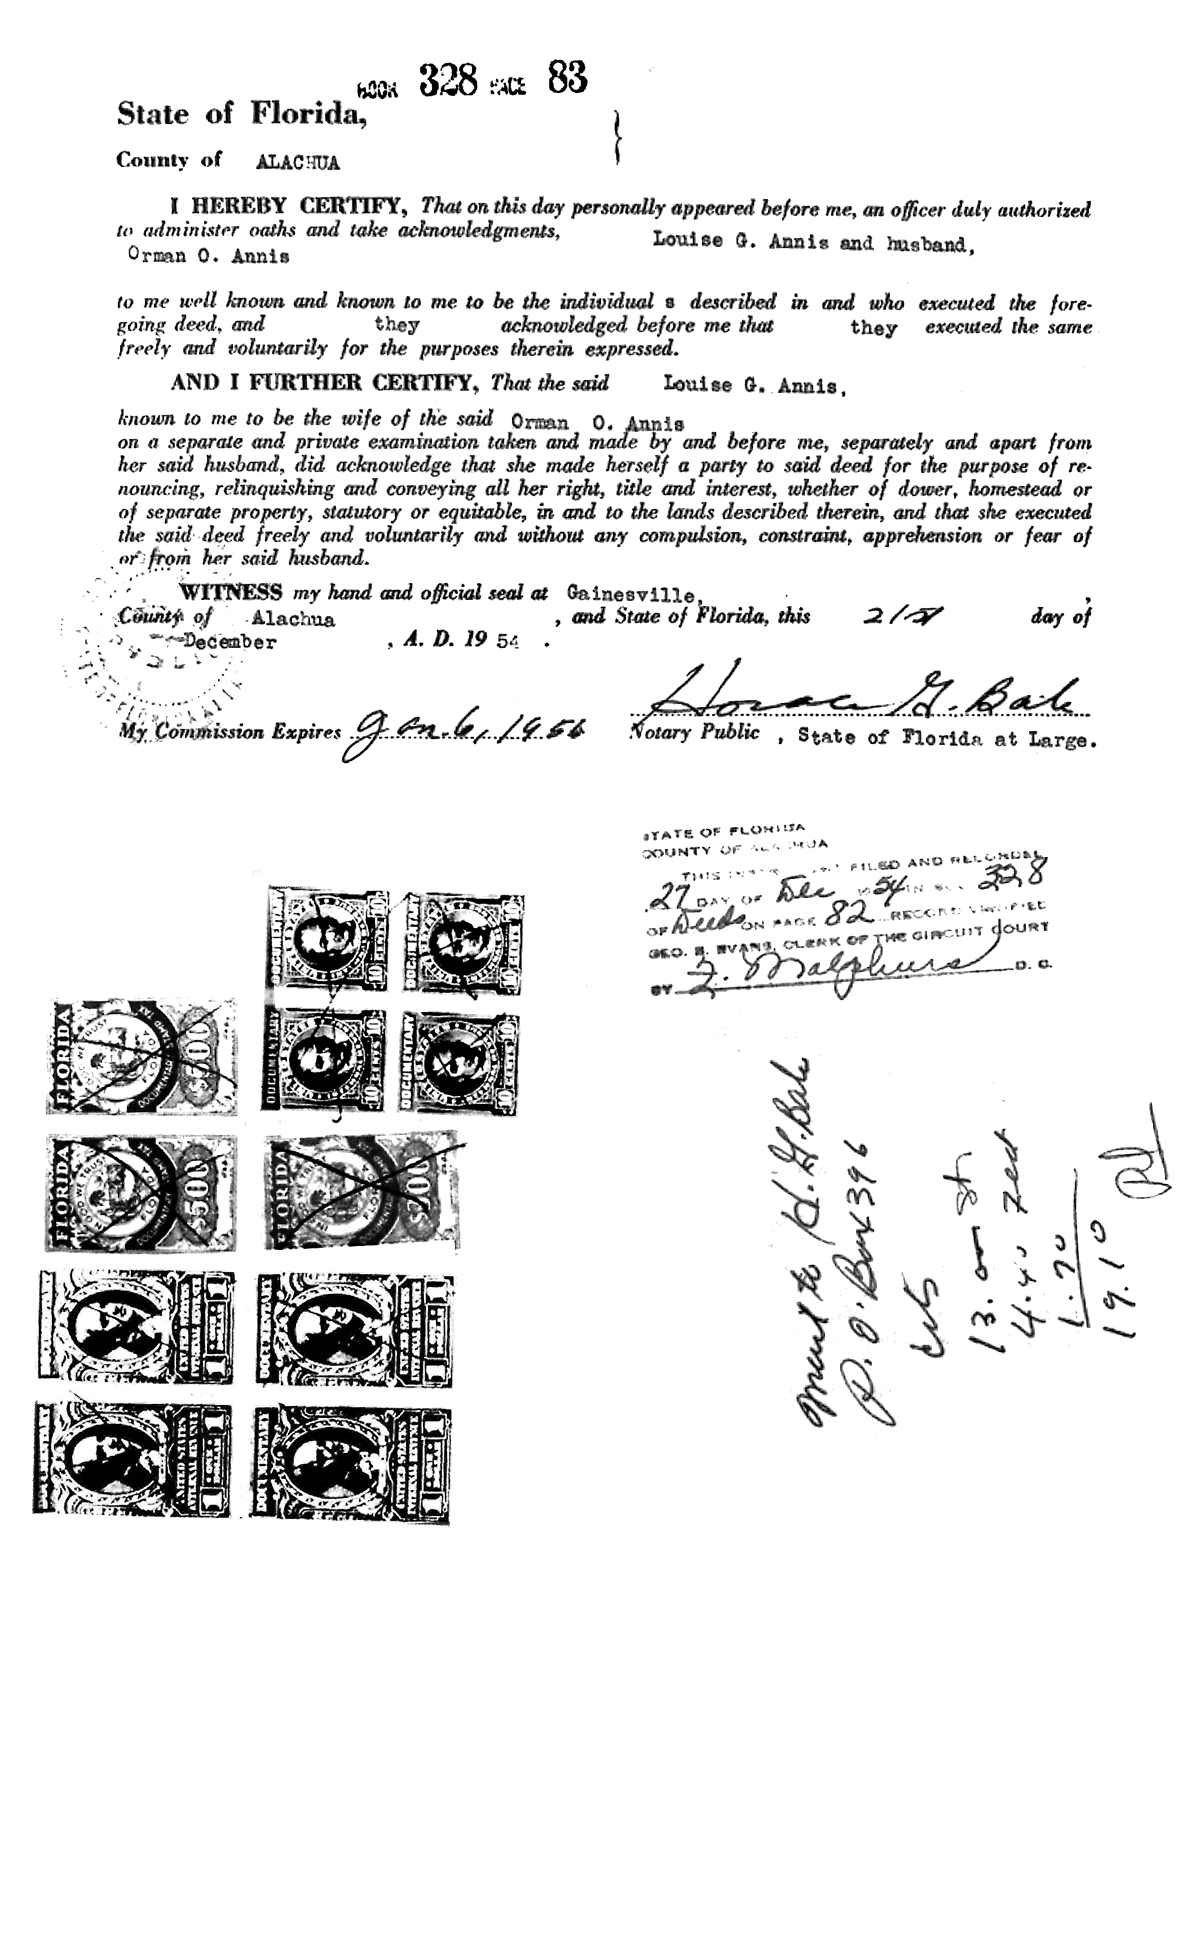 BOOK 328 PAGE 83
State of Florida,
County of ALACHUA
I HEREBY CERTIFY, That on this day personally appeared before me, an officer duly authorized
to administer oaths and take acknowledgments, Louise G. Annis and husband,
Orman O. Annis
to me well known and known to me to be the individual s described in and who executed the fore-
going deed, and they acknowledged before me that they executed the same
freely and voluntarily for the purposes therein expressed.
AND I FURTHER CERTIFY, That the said Louise G. Annis,
known to me to be the wife of the said Orman O. Annis
on a separate and private examination taken and made by and before me, separately and apart from
her said husband, did acknowledge that she made herself a party to said deed for the purpose of re-
nouncing, relinquishing and conveying all her right, title and interest, whether of dower, homestead or
of separate property, statutory or equitable, in and to the lands described therein, and that she executed
the said deed freely and voluntarily and without any compulsion, constraint, apprehension or fear of
or from her said husband.
WITNESS my hand and official seal at Gainesville, ,
County of Alachua , and State of Florida, this 21st day of
December , A. D. 19 54 .
My Commission Expires Jan. 6, 1956
Horace G. Bate
Notary Public , State of Florida at Large.
STATE OF FLORIDA
COUNTY OF ALACHUA
THIS FILED AND RECORDED
27 DAY OF Dec 1954 IN 328
OF Deeds ON PAGE 82 RECORD VERIFIED
GEO. E. EVANS, CLERK OF THE CIRCUIT COURT
BY Z. Malphurs D. C.
DOCUMENTARY
10 CENTS 10
DOCUMENTARY
10 CENTS 10
DOCUMENTARY
10 CENTS 10
DOCUMENTARY
10 CENTS 10
FLORIDA
IN GOD WE TRUST
DOCUMENTARY STAMP TAX
$500
FLORIDA
IN GOD WE TRUST
$500
FLORIDA
Mail to H. G. Bate
P. O. Box 396
city
13.00 st
4.40 Fed
1.70
19.10
Pd